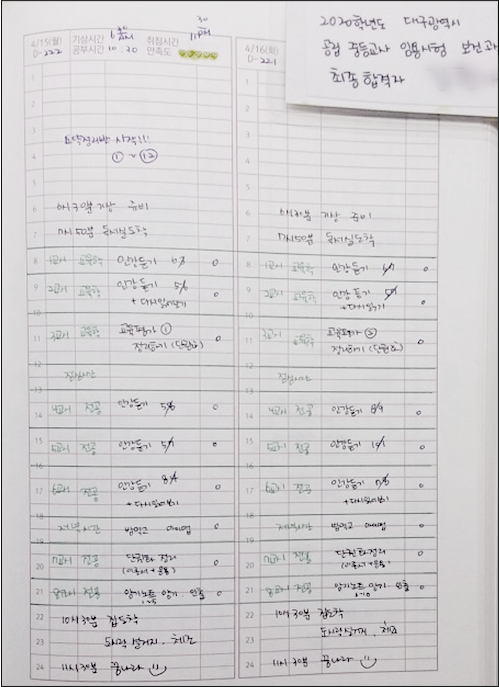 2020학년도 대구광역시
공립 중등교사 임용시험 보건과
최종합격자
4/15(월) 기상시간 6시 30 취침시간 11시 30
D-222 공부시간 10:30 만족도
4/16(화)
D-221
1
2
3
요약정리반 시작!!!
4 ① ~ ⑫
5
6 6시 30분 기상 준비
7 7시 50분 독서실도착
8 1교시 교육학 인강듣기 0
9 2교시 교육학 인강듣기 0
10 + 다시읽기
11 3교시 교육학 교육평가 ① 0
정리하기 (단권화)
12
점심시간
13
14 4교시 전공 인강듣기 0
15 5교시 전공 인강듣기 0
16
17 6교시 전공 인강듣기 0
+ 다시읽기
18
19 저녁시간 밥먹고 0
20 7교시 전공 단권화 정리 0
21 8교시 전공 암기노트 암기. 인출 0
22 10시 30분 집도착
23 도시락 설거지. 체조
24 11시 30분 꿈나라
1
2
3
4
5
6 6시 기상 준비
7 7시 50분 독서실도착
8 1교시 교육학 인강듣기 0
9 2교시 교육학 인강듣기 0
10 + 다시읽기
11 3교시 교육학 교육평가 0
정리하기 (단권화)
12
점심시간
13
14 4교시 전공 인강듣기 0
15 5교시 전공 인강듣기 0
16
17 6교시 전공 인강듣기 0
+ 다시읽기
18
19 저녁시간 밥먹고 0
20 7교시 전공 단권화 정리 0
21 8교시 전공 암기노트 암기. 인출 0
22 10시 30분 집도착
23 도시락 설거지. 체조
24 11시 30분 꿈나라